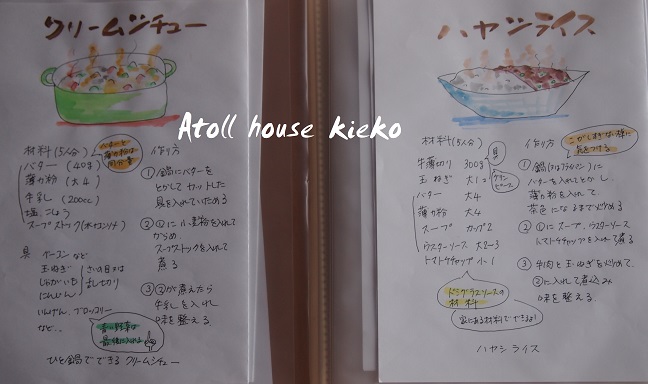 クリームシチュー
材料(5人分)
バターと
薄力粉は
同分量
バター (40g)
薄力粉 (大4)
牛乳 (200cc)
塩、こしょう
スープストック(ホウコンソメ)
具 ベーコン など
玉ねぎ
じゃがいも
にんじん
さいの目又は
乱切り
いんげん、ブロッコリー
など、、
青い野菜は
最後に入れる
ひと鍋でできる クリームシチュー
作り方
① 鍋にバターを
とかして カットした
具を入れていためる
② ①に小麦粉を入れて
からめ、
スープストックを入れて
煮る
③ ②が煮えたら
牛乳を入れ
味を整える
Atoll house kieko
ハヤシライス
材料(5人分)
牛薄切り 300g
玉ねぎ 大1
バター 大4
薄力粉 大4
スープ カップ2
ウスターソース 大2~3
トマトケチャップ 小1
具
グリン
ピース
ドミグラスソースの
材料
家にある材料でできるよ!
作り方
こがしすぎない様に
気をつける
① 鍋(又はフライパン)に
バターを入れてとかし、
薄力粉を入れて
茶色になるまで炒める
② ①にスープ、ウスターソース
トマトケチャップを入れて煮る
③ 牛肉と玉ねぎを炒めて、
②に入れて煮込み
味を整える。
ハヤシライス